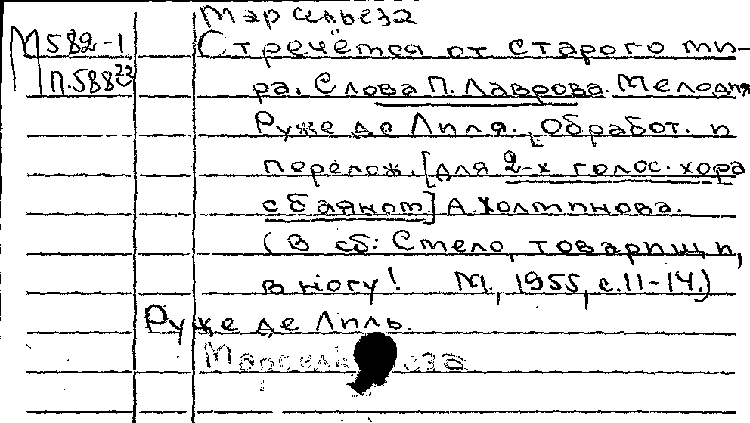 Марсельеза
М 582-1
П.588 23
Стречётся от старого ми-
ра. Слова П. Лаврова. Мелодия
Руже де Лиля. Обработ. и
перелож. [для 2-х голос. хора
с баяном] А. Холминова.
(В сб: Смело, товарищи,
в ногу! М., 1955, с. 11-14.)
Руже де Лиль.
Марсельеза